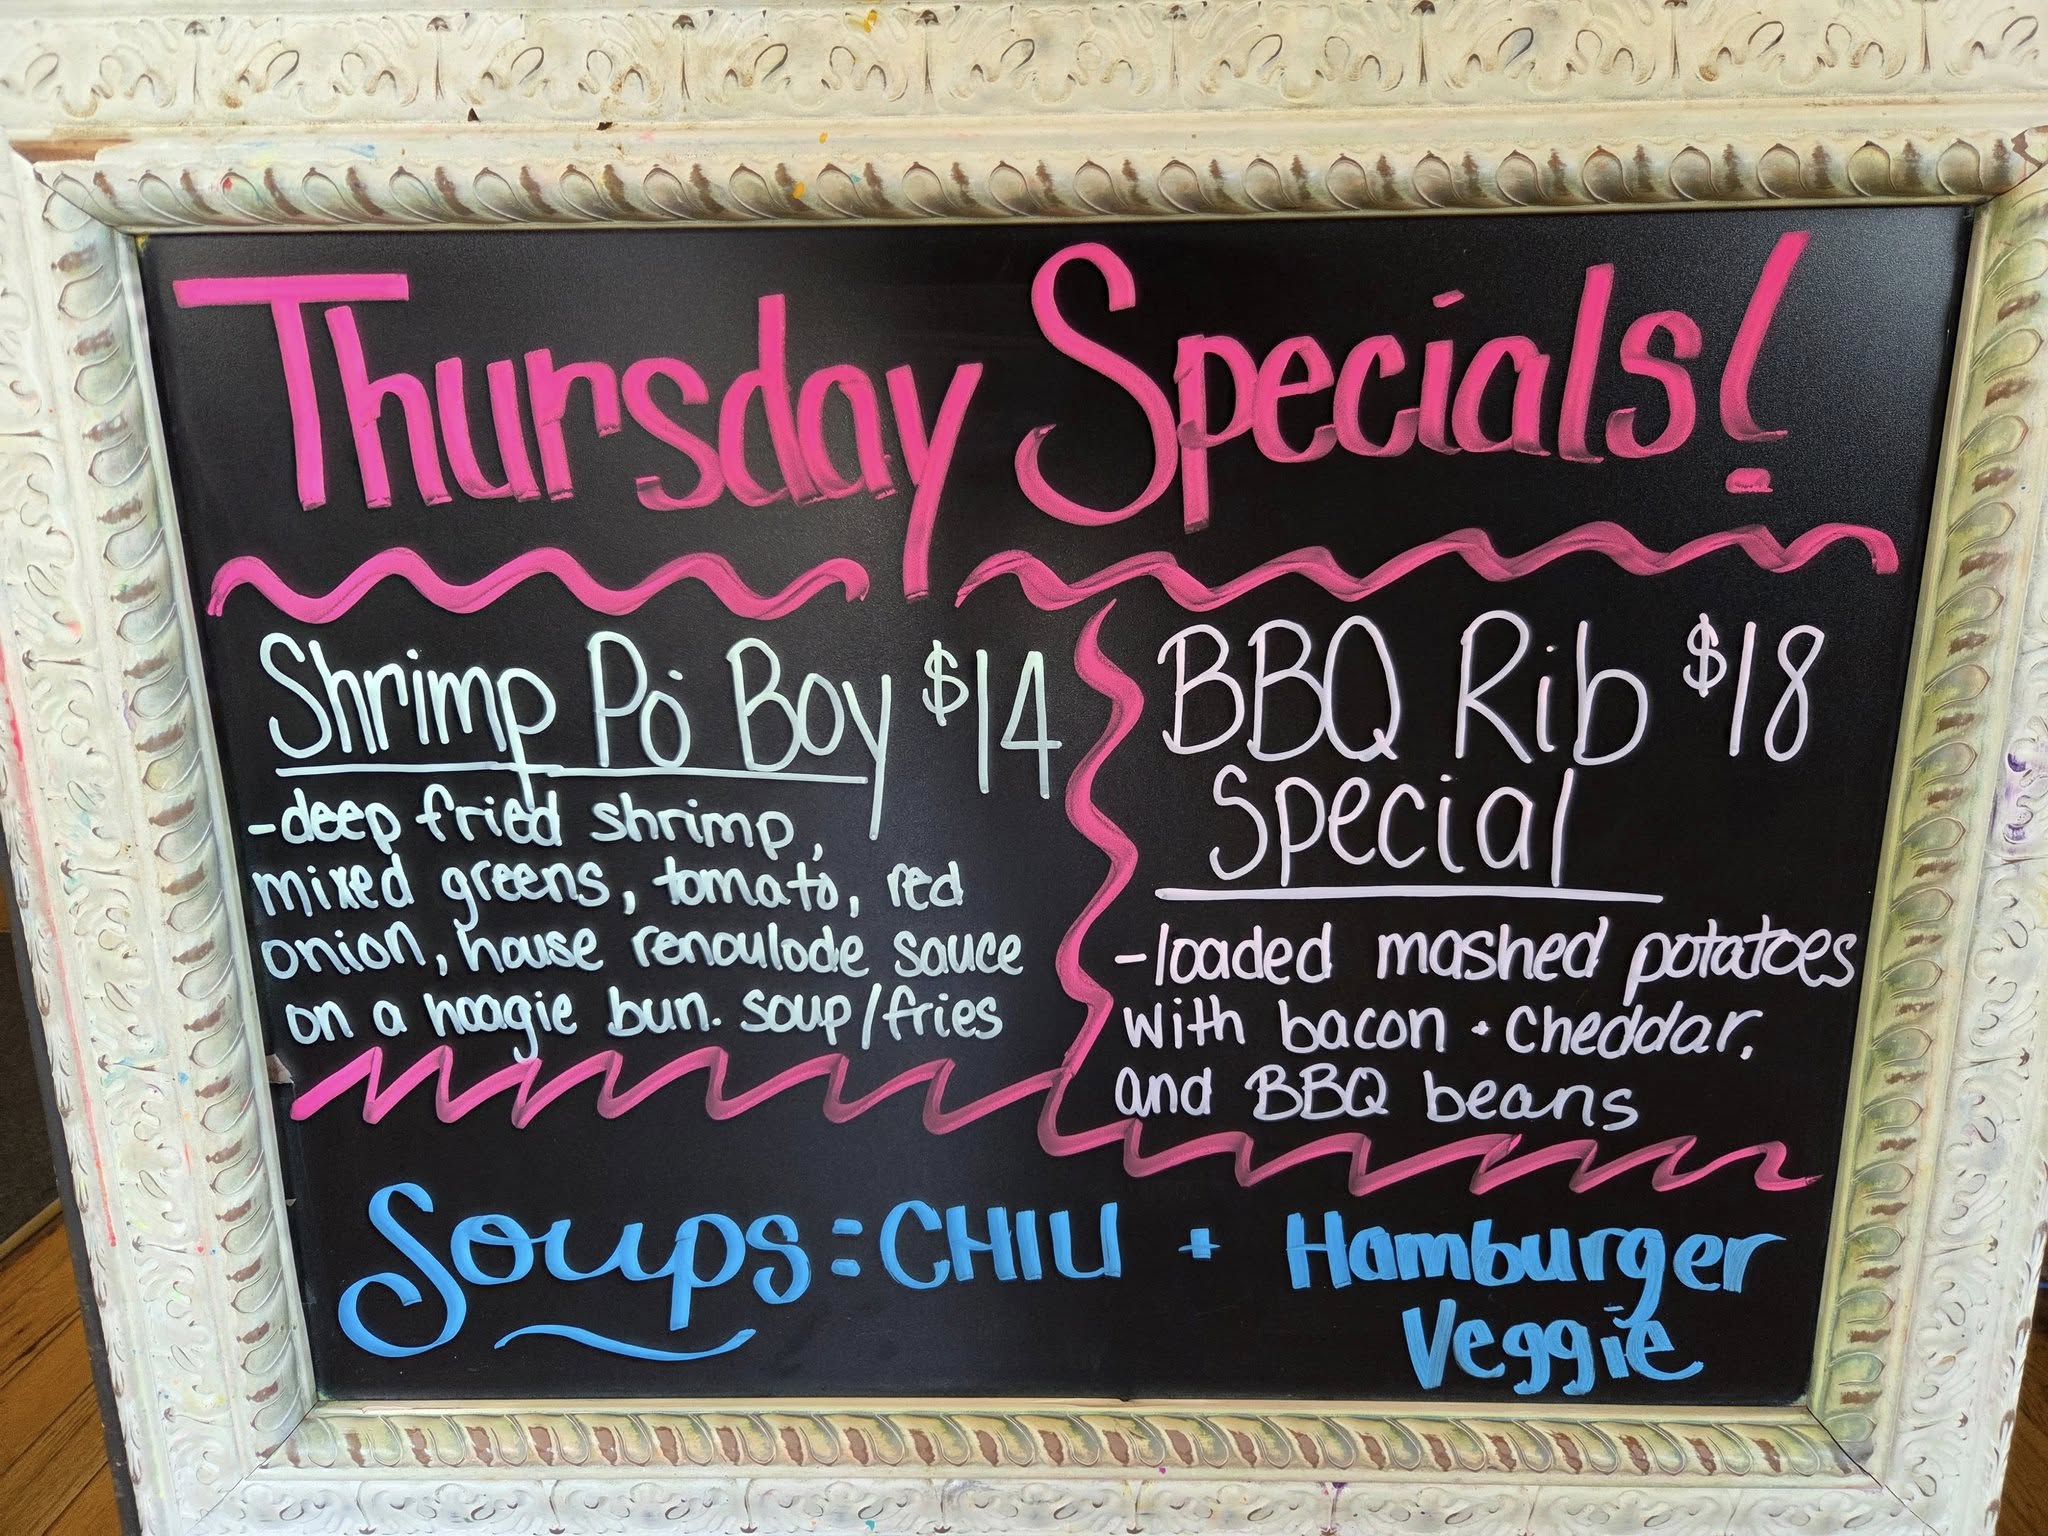 Thursday Specials!
Shrimp Po' Boy $14
-deep fried shrimp,
mixed greens, tomato, red
onion, house renoulode sauce
on a hoagie bun. soup/fries
BBQ Rib $18
Special
-loaded mashed potatoes
with bacon + cheddar,
and BBQ beans
Soups: CHILI + Hamburger
Veggie